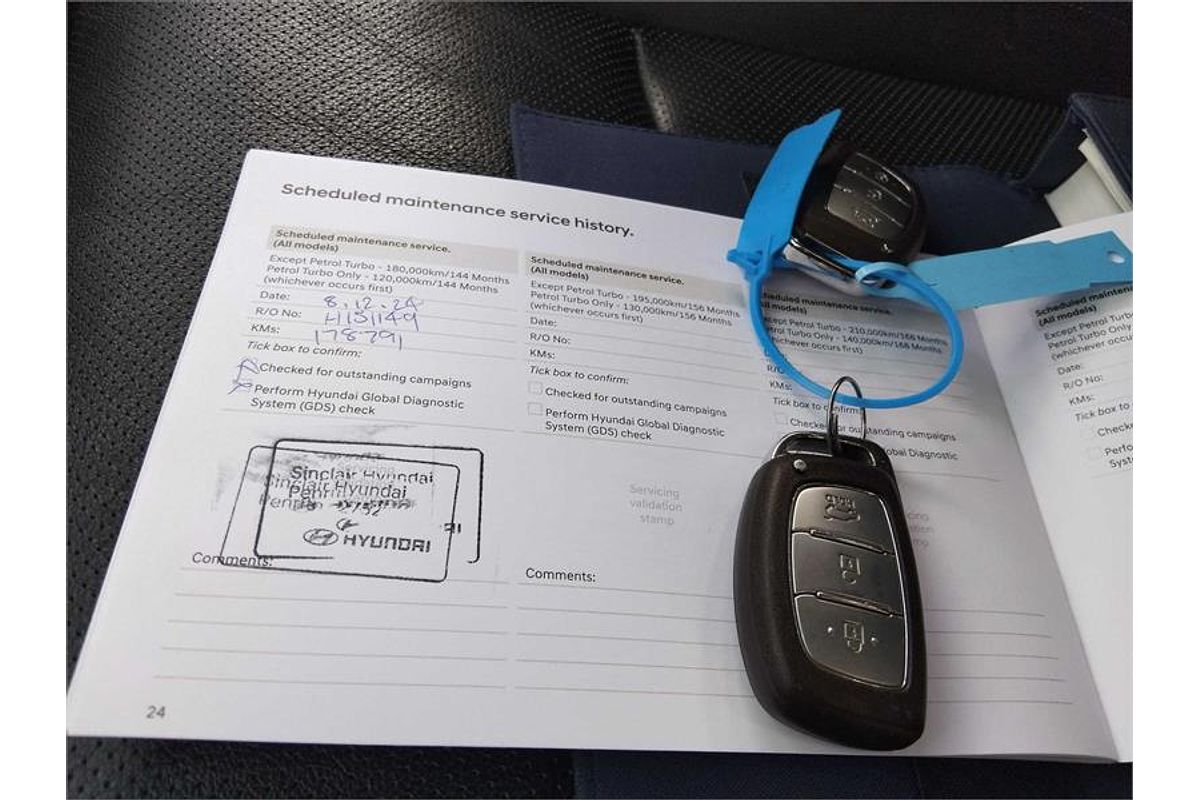 Scheduled maintenance service history.
Scheduled maintenance service.
(All models)
Except Petrol Turbo - 180,000km/144 Months
Petrol Turbo Only - 120,000km/144 Months
(whichever occurs first)
Date: 8.12.24
R/O No: H151149
KMs: 178291
Tick box to confirm:
Checked for outstanding campaigns
Perform Hyundai Global Diagnostic
System (GDS) check
Sinclair Hyundai
HYUNDAI
Comments:
24
Scheduled maintenance service.
(All models)
Except Petrol Turbo - 195,000km/156 Months
Petrol Turbo Only - 130,000km/156 Months
(whichever occurs first)
Date:
R/O No:
KMs:
Tick box to confirm:
Checked for outstanding campaigns
Perform Hyundai Global Diagnostic
System (GDS) check
Servicing
validation
stamp
Comments:
Scheduled maintenance service.
(All models)
Except Petrol Turbo - 210,000km/168 Months
Petrol Turbo Only - 140,000km/168 Months
whichever occurs first)
KMs:
Tick box to confirm:
Checked for outstanding campaigns
Global Diagnostic
check
Scheduled maintenan
(All models)
Except Petrol Turbo
Petrol Turbo Only -
(whichever occurs
Date:
R/O No:
KMs:
Tick box to
Check
Perfo
Syst
HOLD